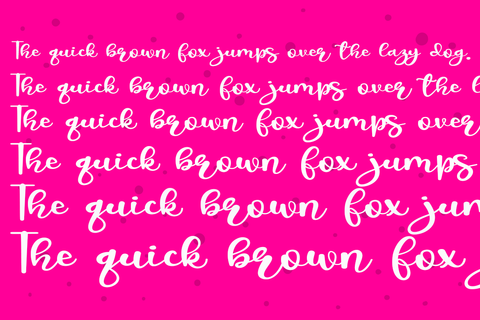 The quick brown fox jumps over the lazy dog.
The quick brown fox jumps over the l
The quick brown fox jumps over
The quick brown fox jumps
The quick brown fox jum
The quick brown fox j